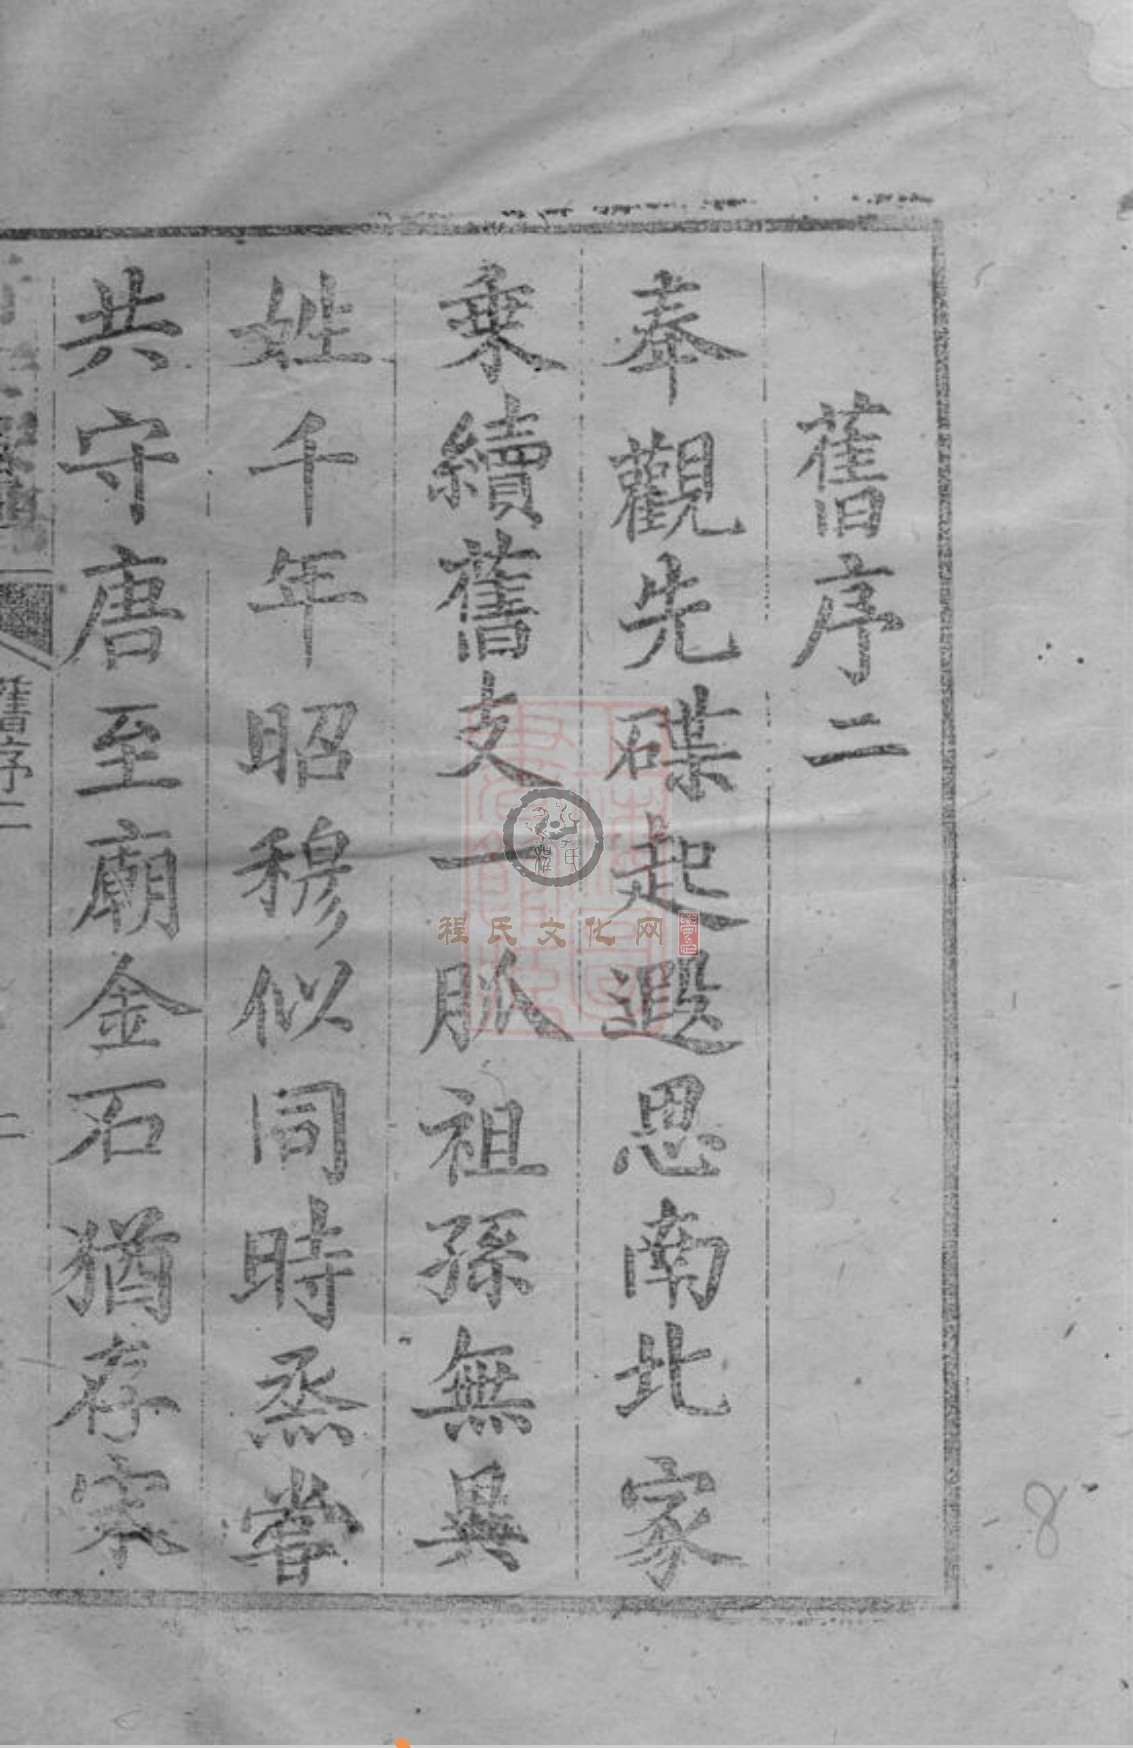 舊序二
奉觀先碟起遐思南北家
乘續舊支一脈祖孫無異
姓千年昭穆似同時烝嘗
共守唐至廟金石猶存宋
舊序二
二
程氏文化网
8